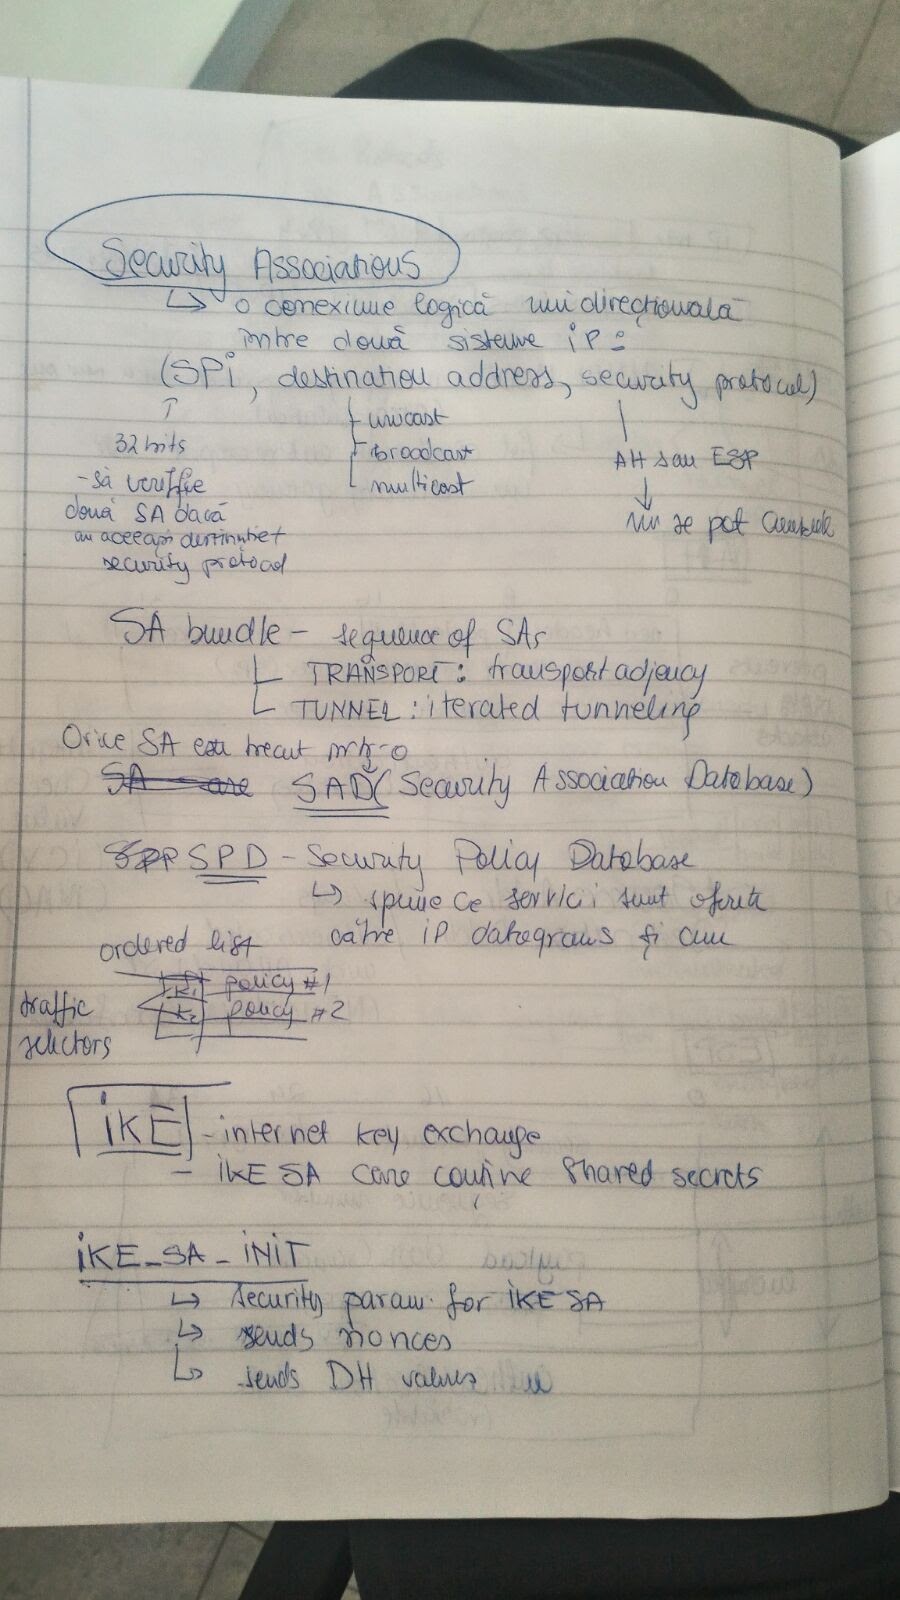 Security Associations
↳ o conexiune logică unidirecțională
între două sisteme iP:
(SPi, destination address, security protocol)
↑
32 bits
- să verifie
două SA dacă
au aceeași
security protocol
unicast
broadcast
multicast
AH sau ESP
↓
nu se pot
SA bundle - sequence of SAs
TRANSPORT: transport adjency
TUNNEL: iterated tunneling
Orice SA este trecut într-o
SA are SAD (Security Association Database)
SPD - Security Policy Database
↳ spune ce servicii sunt oferite
către iP datagrams și cum
ordered list
traffic
selectors
policy #1
policy #2
iKE - internet key exchange
- iKE SA care conține shared secrets
iKE_SA_iNiT
↳ security param. for iKE SA
↳ sends nonces
↳ sends DH values